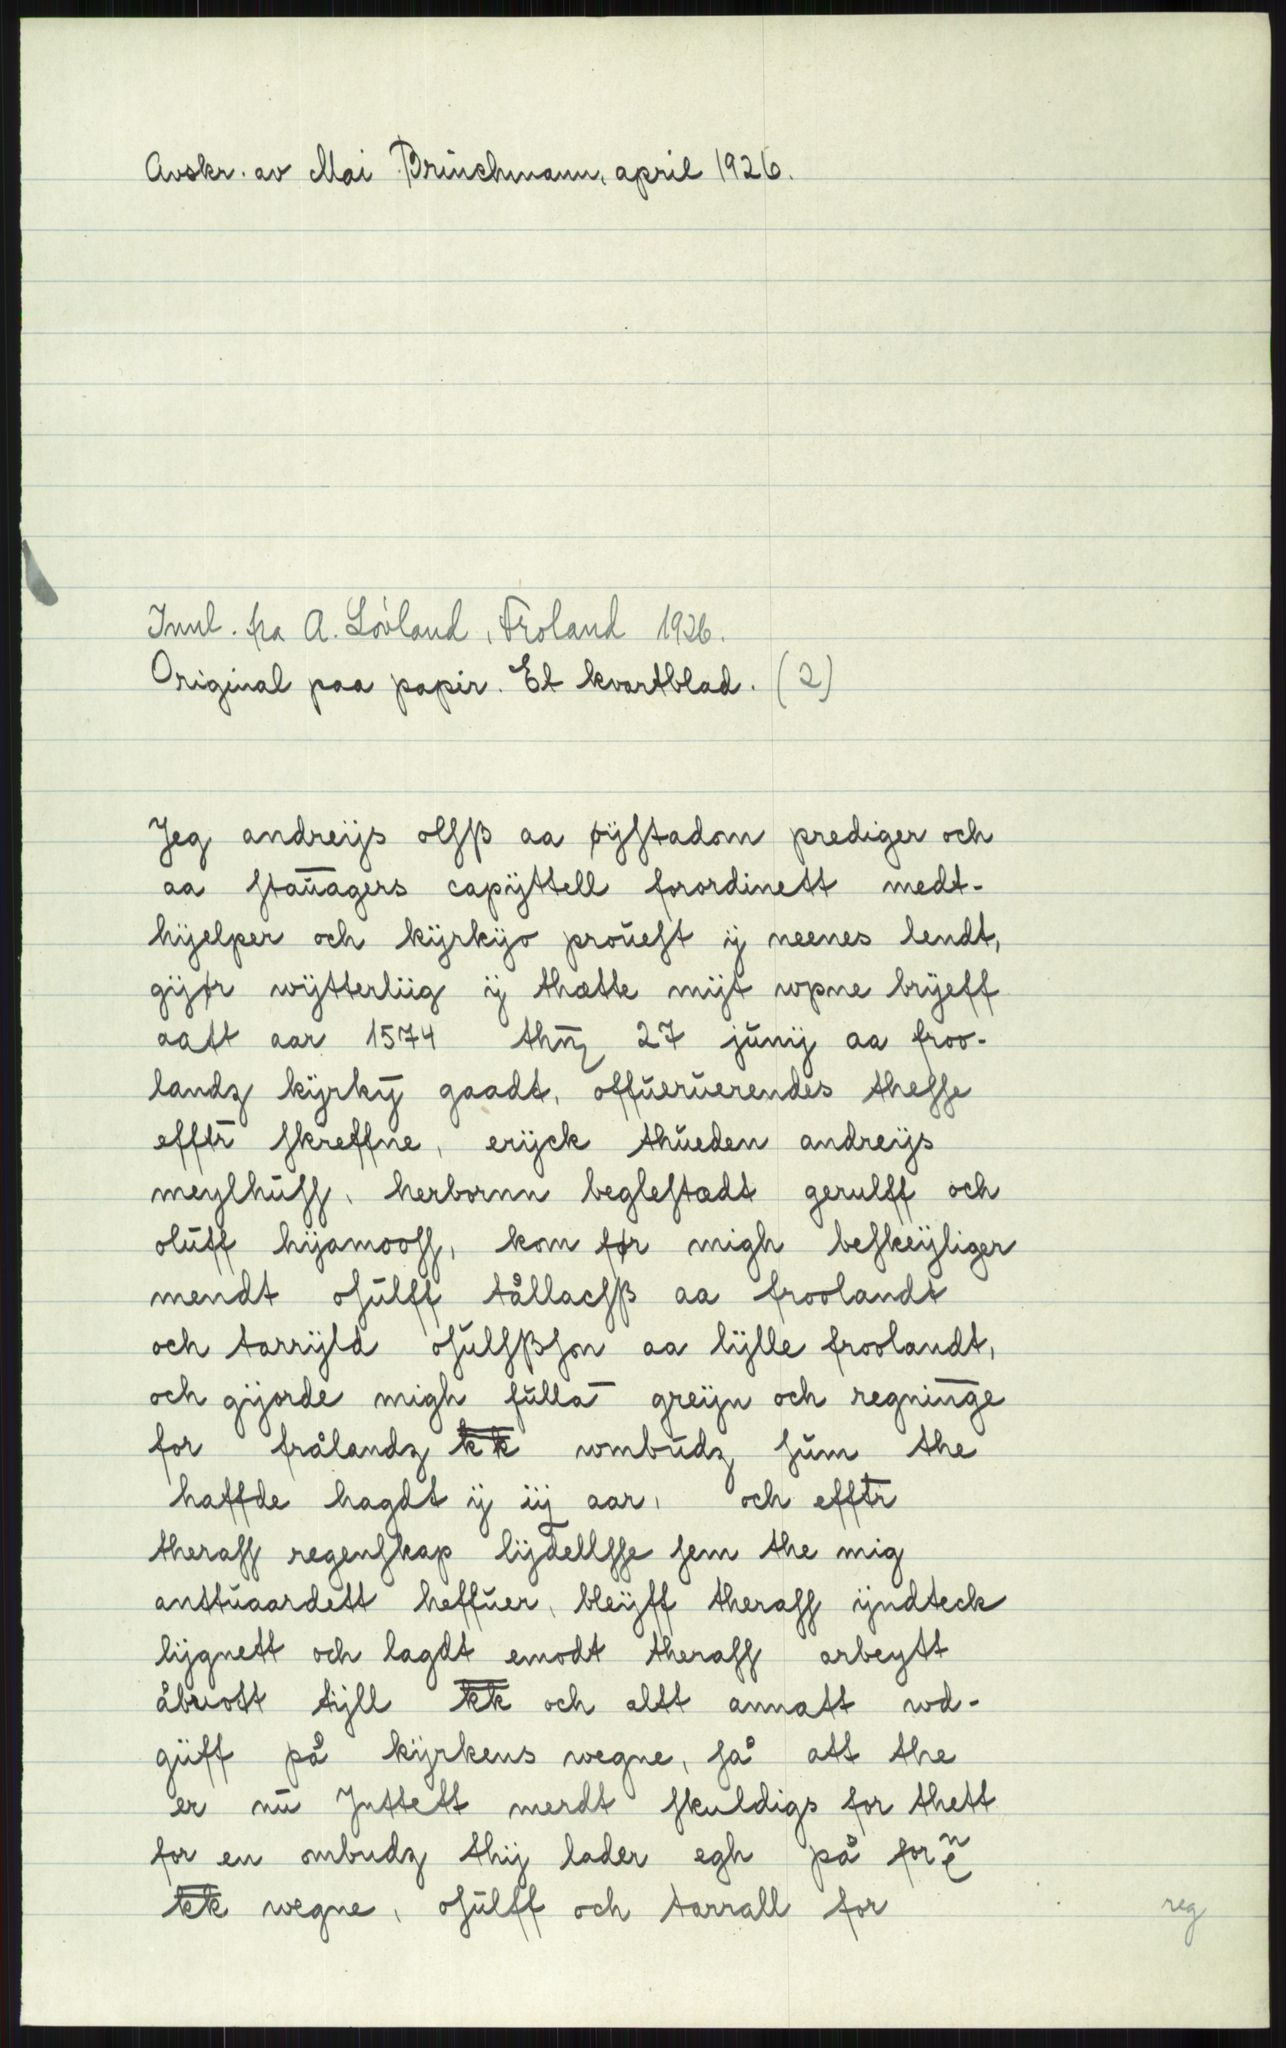 Avskr. av Mai Brinchmann, april 1926.
Innl. fra A. Løvland, Froland 1926.
Original paa papir. Et kvartblad. (2)
Jeg andreijs olſß aa øÿſtadom prediger och
aa ſtaūagers capÿttell forordinett medt-
hÿelper och kÿrkÿo proŭeſt ÿ neenes lendt,
gÿør wÿtterliig ÿ thætte mÿt wpne brÿeff
aatt aar 1574 thn̄z 27 jŭnij aa froo-
landz kÿrkȳ gaadt, offŭerŭerendes theſſe
efftr̄ ſkreffne, erÿck thŭeden andreÿs
meylhŭſſ, herbornn begleſtædt gerulff och
olŭff hÿamooſſ, kom før migh beſkeÿliger
mendt oſŭlff tållacſß aa froolandt
och tarrÿld oſŭlſßſon aa lÿlle froolandt,
och gÿorde migh fŭllā greÿn och regninḡe
for frålandz k̅k̅ wmbŭdz ſŭm the
haffde hagdt ÿ iij aar, och efftr̄
theraff regenſkap lÿdellſſe ſem the mig
anttŭaardett heffuer, bleÿff theraff ÿndteck
lÿgnett och lagdt emodt theraff arbeytt
åbrott tÿll k̅k̅ och altt annatt wd-
gŭff på kÿrkens wegne, ſå att the
er nŭ Jnttett merdt ſkuldigs for thett
for en ombudz thÿ lader egh på forⁿe
k̅k̅ wegne, oſŭlff och tarrall for
reg